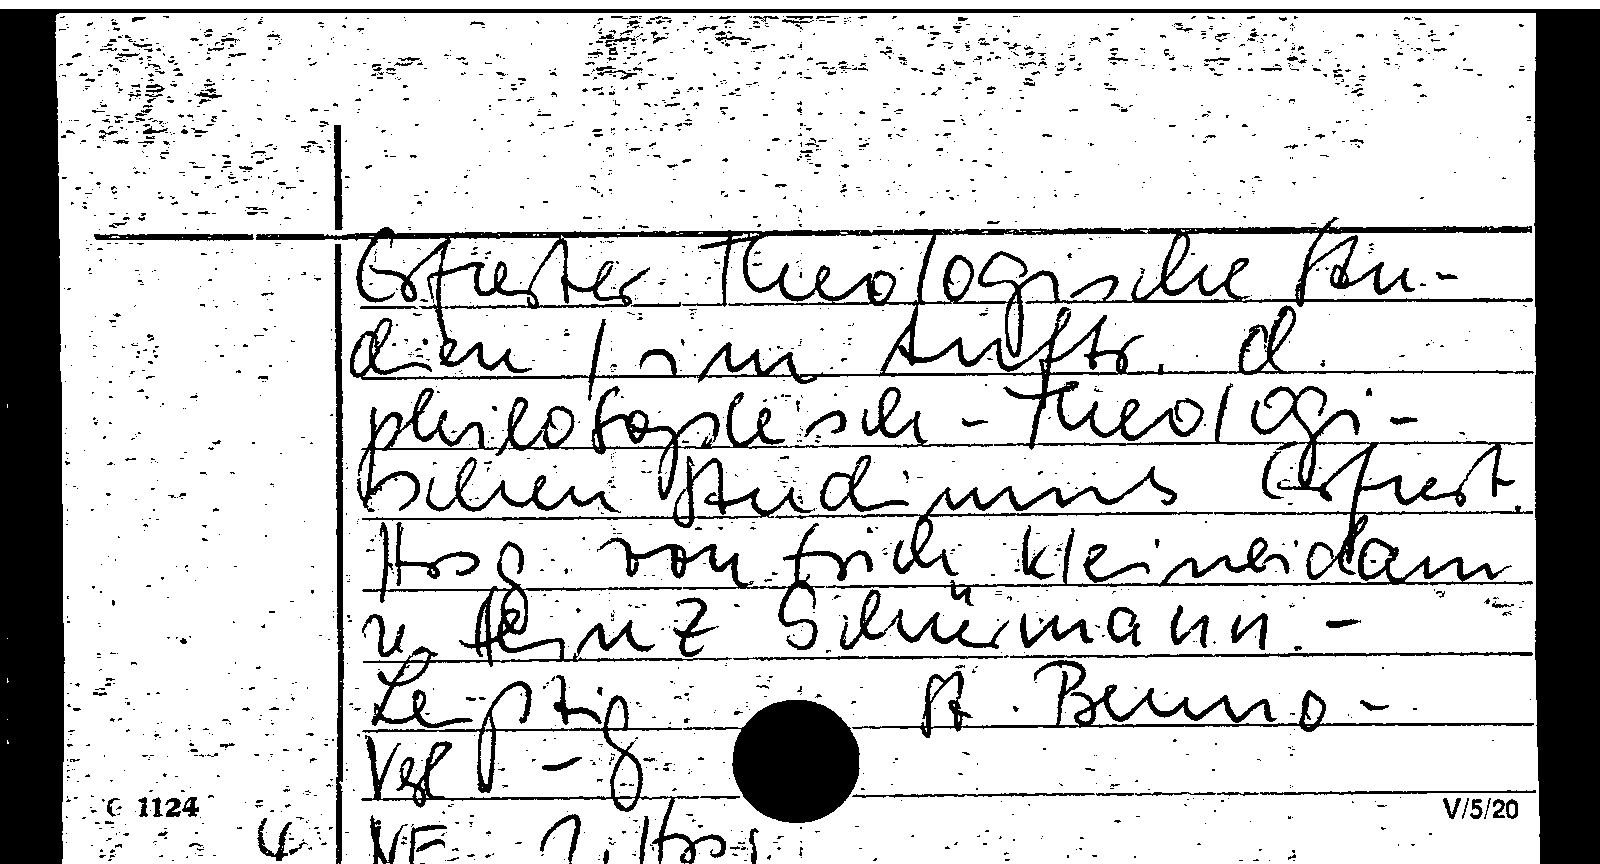 Erfurter Theologische Stu-
dien / im Auftr. d.
philosophisch-theologi-
schen Studiums Erfurt.
Hrsg. von Erich Kleineidam
u. Heinz Schürmann. -
Leipzig : St. Benno-
Verl.
C 1124
V/5/20
NE: 2. Hrsg.